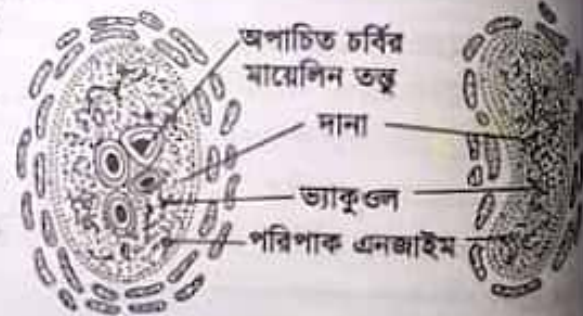 অপাচিত চর্বির
মায়েলিন তন্তু
দানা
ভ্যাকুওল
পরিপাক এনজাইম